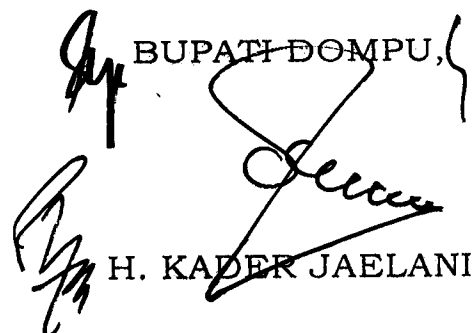 BUPATI DOMPU,
H. KADER JAELANI